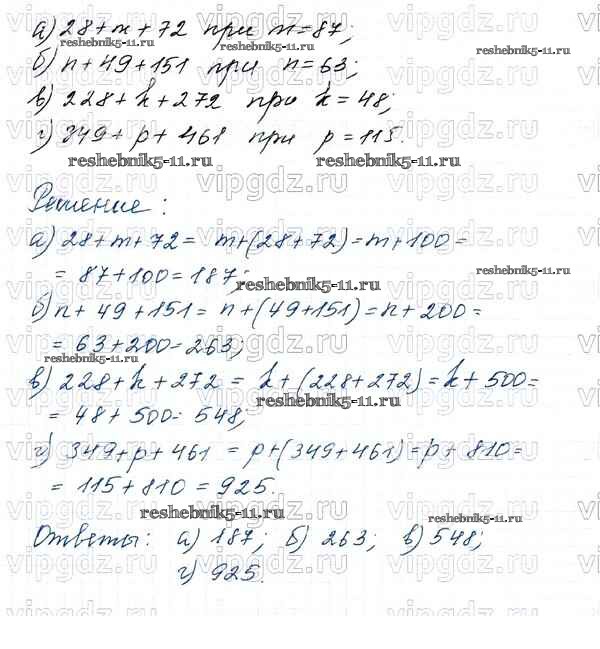 а) 28+m+72 при m=87;
б) n+49+151 при n=63;
в) 228+k+272 при k=48;
г) 349+p+461 при p=115.
Решение:
а) 28+m+72= m+(28+72)=m+100=
= 87+100=187;
б) n+49+151= n+(49+151)=n+200=
= 63+200=263;
в) 228+k+272 = k+(228+272)=k+500=
= 48+500= 548;
г) 349+p+461 = p+(349+461)=p+810=
= 115+810=925.
Ответы: а) 187; б) 263; в) 548;
г) 925.
vipgdz.ru
reshebnik5-11.ru